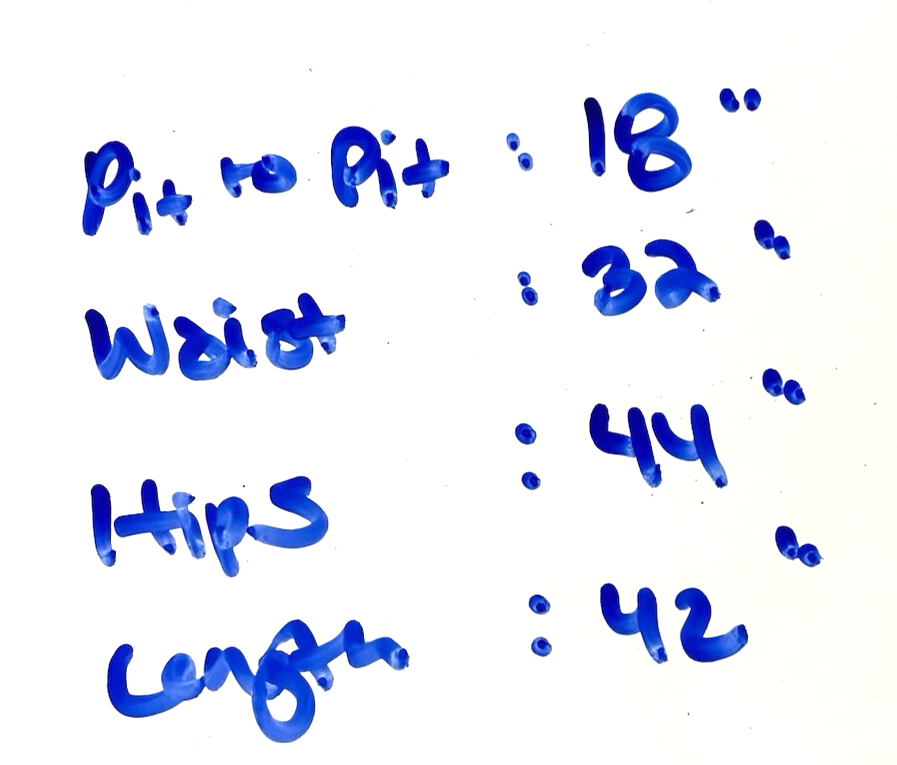 Pit to Pit : 18"
Waist : 32"
Hips : 44"
Length : 42"